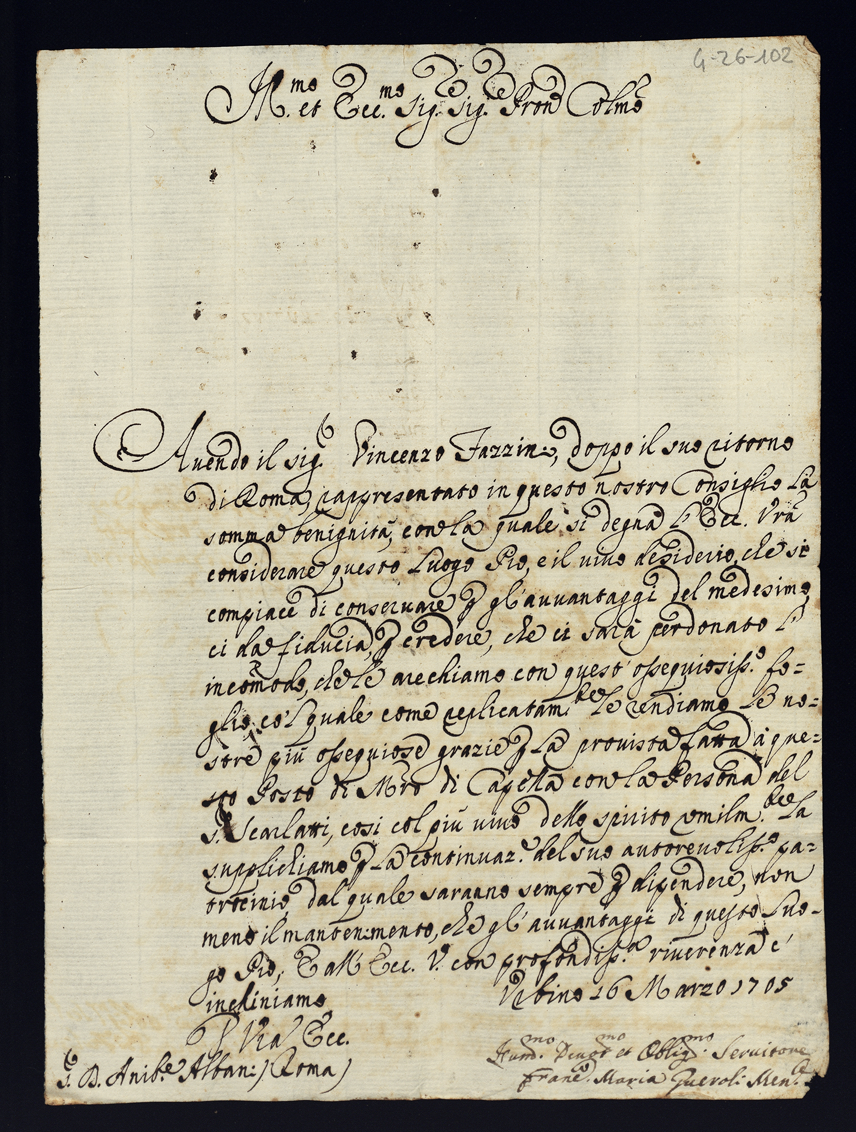 G-26-102
Ill.mo et Ecc.mo Sig.re Sig.re Pron Colmo
Auendo il sig.r Vincenzo Fazzini, doppo il suo ritorno
di Roma, rappresentato in questo nostro Consiglio la
somma benignità, con la quale si degna l'Ecc. Vra
considerare questo Luogo Pio, e il viuo desiderio, che si
compiace di conseruare p gl'auuantaggi del medesimo,
ci dà fiducia, p credere, che ci sarà perdonato l'
incomodo, che le rechiamo con questo ossequiosiss.o fo=
glio, co'l quale come replicatam.te le rendiamo le no=
stre più ossequiose grazie p la prouista fatta à que=
sto Posto di Mro di Capella con la Persona del
s.r Scarlatti, così col più viuo dello spirito umilm.te la
supplichiamo p la continuaz.e del suo autoreuoliss.o pa=
trocinio dal quale saranno sempre p dipendere, non
meno il mantenimento, che gl'auuantaggi di questo Luo=
go Pio, E all'Ecc. V.a con profondiss.a riuerenza c'
inchiniamo Vrbino 16 Marzo 1705
D Vra Ecc.
s. D. Anib.e Albani (Roma)
Hum.mo Deuot.mo et Oblig.mo Seruitore
Franc.o Maria